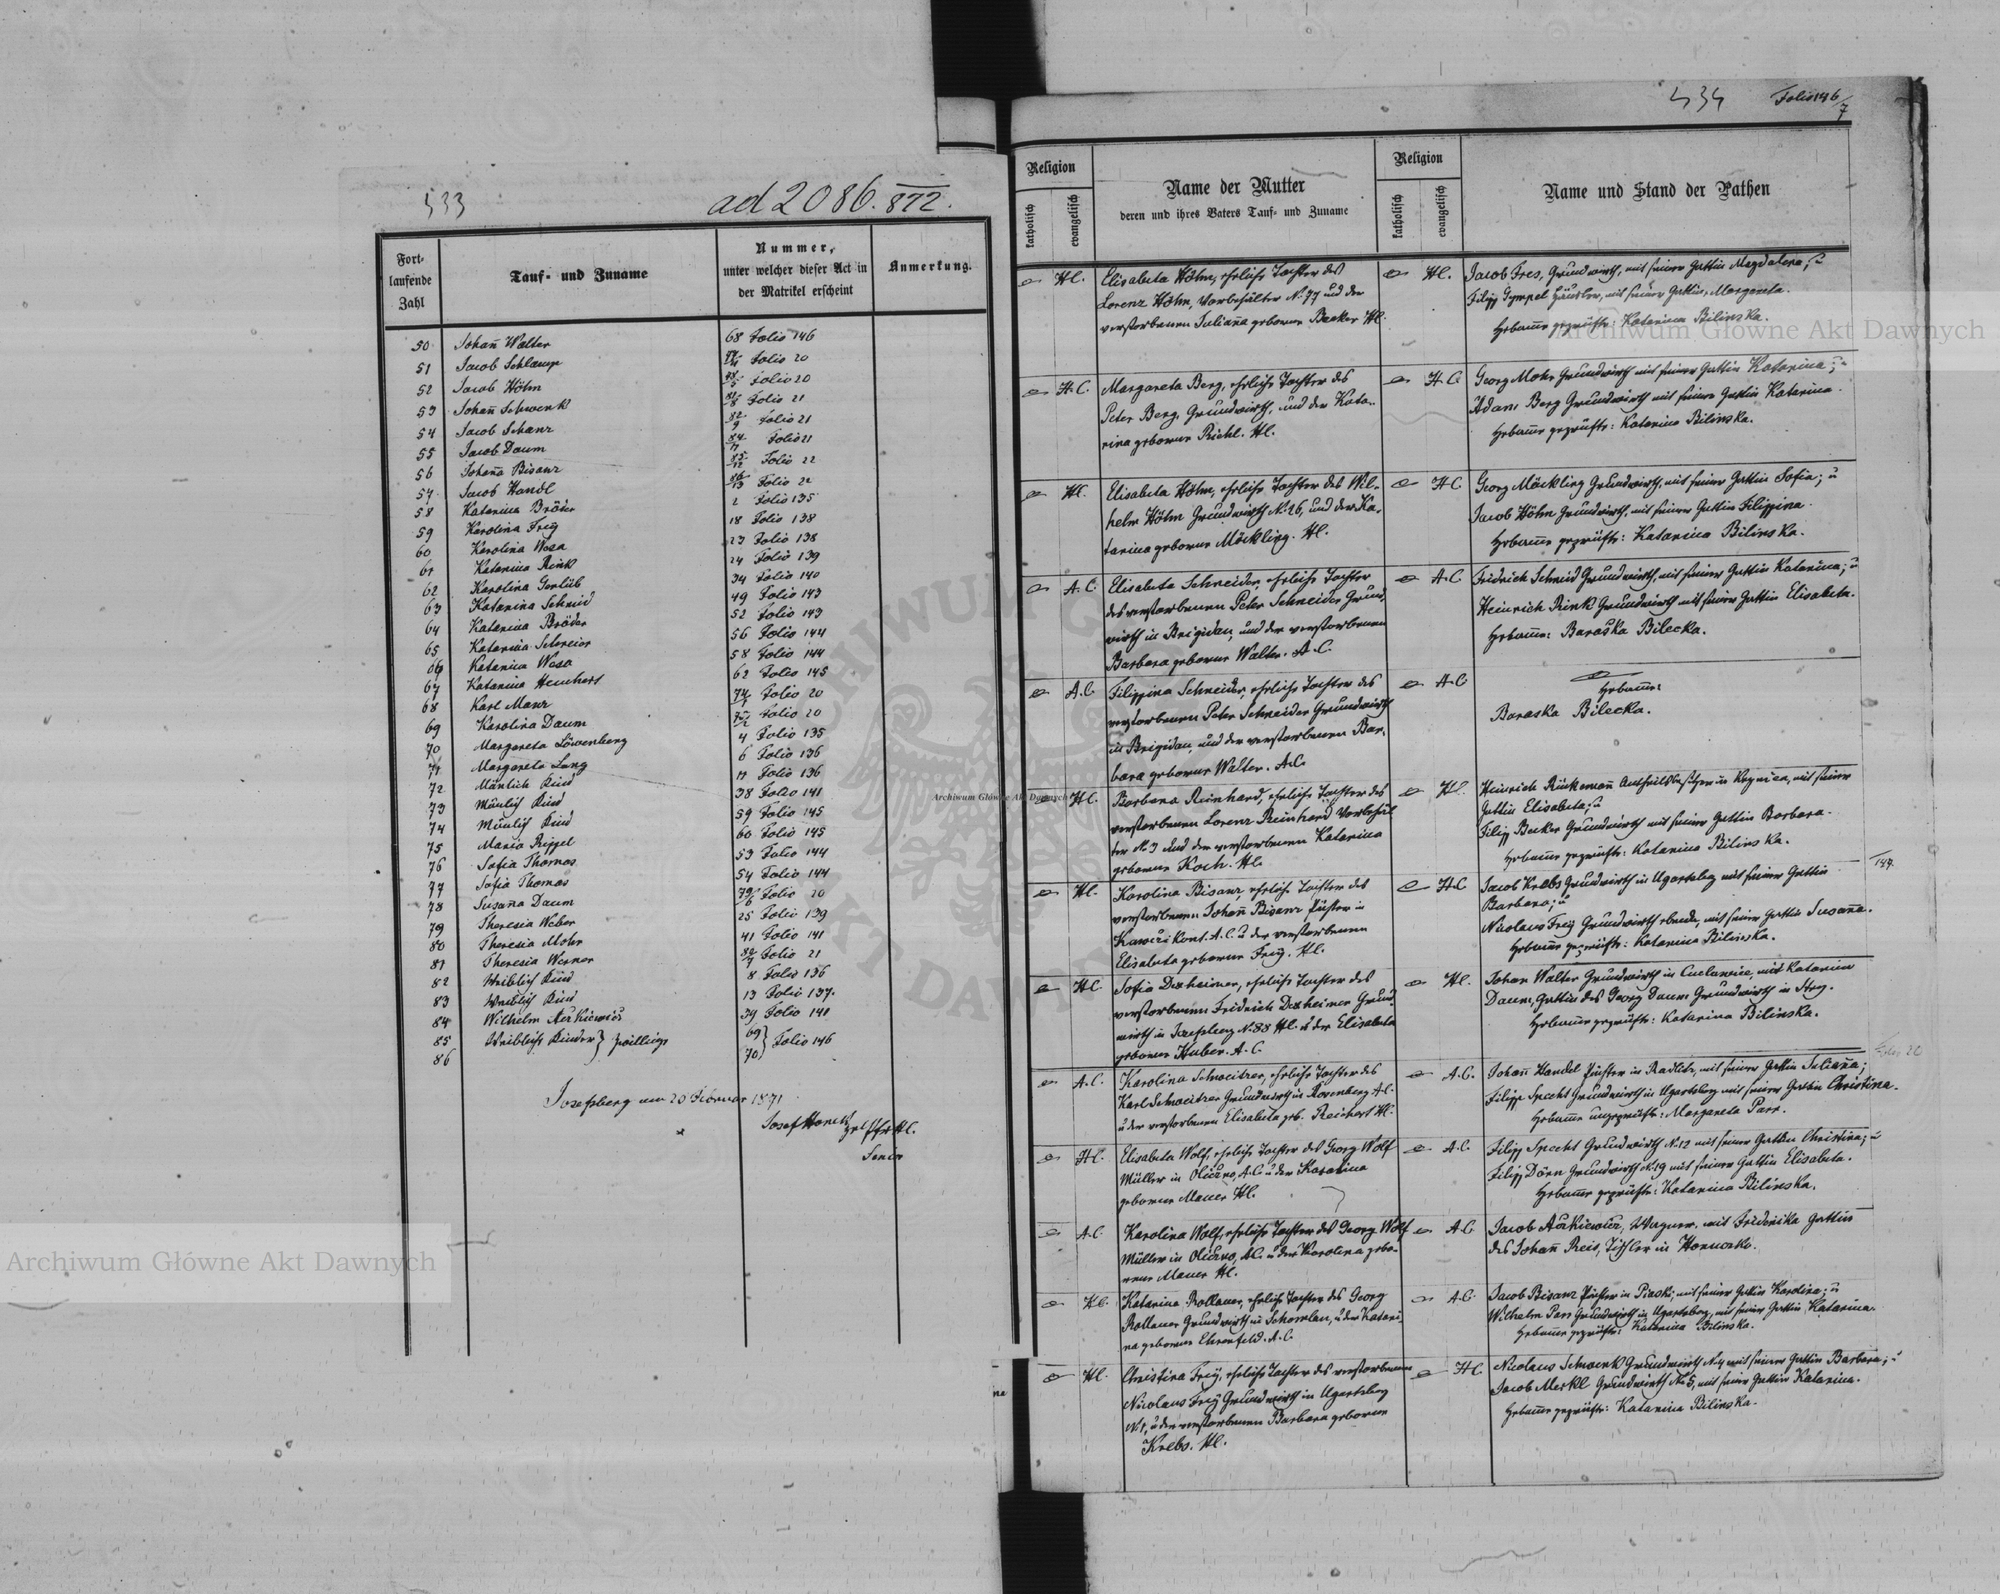 533
ad 2086. 872.
Fort-
laufende
Zahl
Tauf- und Zuname
Nummer,
unter welcher dieser Act in
der Matrikel erscheint
Anmerkung.
50 Johann Walter 68 Folio 146
51 Jacob Schlamp Folio 20
52 Jacob Höhm Folio 20
53 Johann Schwenk Folio 21
54 Jacob Schanz 82/9 Folio 21
55 Jacob Daum 84/11 Folio 21
56 Johann Bisanz 85/12 Folio 22
57 Jacob Handl 86/13 Folio 22
58 Katarina Bröder 2 Folio 135
59 Karolina Freÿ 18 Folio 138
60 Karolina Wosa 23 Folio 138
61 Katarina Rink 24 Folio 139
62 Karolina Gorlüb 34 Folio 140
63 Katarina Schmid 49 Folio 143
64 Katarina Bröder 52 Folio 143
65 Katarina Schreier 56 Folio 144
66 Katarina Wosa 58 Folio 144
67 Katarina 62 Folio 145
68 Karl Manz 74/1 Folio 20
69 Karolina Daum 75/2 Folio 20
70 Margareta Löwenberg 4 Folio 135
71 Margareta Lang 6 Folio 136
72 Mänlich Kind 11 Folio 136
73 Mänlich Kind 38 Folio 141
74 Mänlich Kind 59 Folio 145
75 Maria Rippel 60 Folio 145
76 Sofia Thomas 53 Folio 144
77 Sofia Thomas 54 Folio 144
78 Susanna Daum 79/6 Folio 20
79 Theresia Weber 25 Folio 139
80 Theresia Mohr 41 Folio 141
81 Theresia Werner 80/7 Folio 21
82 Weiblich Kind 8 Folio 136
83 Weiblich Kind 13 Folio 137.
84 Wilhelm Aurkiewicz 39 Folio 141
85 Weibliche Kinder } Zwillinge 69 } Folio 146
86 70
Josefsberg am 20 Februar 1871
Josef Hönel
Senior
534 Folio 146/7
Religion
katholisch
evangelisch
Name der Mutter
deren und ihres Vaters Tauf- und Zuname
Religion
katholisch
evangelisch
Name und Stand der Pathen
H.C. Elisabeta Höhm, ehrliche Tochter des
Lorenz Höhm, Vorbehälter N. 77 und der
verstorbenen Julianna geborne Becker H.C.
H.C. Jacob Fres, Grundwirth, mit seiner Gattin Magdalena; u
Filipp Gympel Häusler, mit seiner Gattin, Margareta.
Hebamme geprüfte: Katarina Bilinska.
H.C. Margareta Berg, ehrliche Tochter des
Peter Berg, Grundwirth, und der Kata-
rina geborne Richl. H.C.
H.C. Georg Mohr Grundwirth mit seiner Gattin Katarina; u
Adam Berg Grundwirth mit seiner Gattin Katarina.
Hebamme geprüfte: Katarina Bilinska.
H.C. Elisabeta Höhm, ehrliche Tochter des Wil-
helm Höhm Grundwirth N. 26, und der Ka-
tarina geborne Möckling. H.C.
H.C. Georg Möckling Grundwirth, mit seiner Gattin Sofia; u
Jacob Höhm Grundwirth, mit seiner Gattin Filippina.
Hebamme geprüfte: Katarina Bilinska.
A.C. Elisabeta Schneider, ehrliche Tochter
des verstorbenen Peter Schneider Grund-
wirth in Brigidau und der verstorbenen
Barbara geborne Walter. A.C.
A.C. Fridrich Schmid Grundwirth, mit seiner Gattin Katarina; u
Heinrich Rink Grundwirth mit seiner Gattin Elisabeta.
Hebamme: Baraska Bilecka.
A.C. Filippina Schneider, ehrliche Tochter des
verstorbenen Peter Schneider Grundwirth
in Brigidau, und der verstorbenen Bar-
bara geborne Walter. A.C.
A.C. Hebamme:
Baraska Bilecka.
H.C. Barbara Reinhard, ehrliche Tochter des
verstorbenen Lorenz Reinhard Vorbehäl-
ter N. 3 und der verstorbenen Katarina
geborne Koch. H.C.
H.C. Heinrich Rinkemann Antheilsbesitzer in Krynica, mit seiner
Gattin Elisabeta; u
Filipp Becker Grundwirth mit seiner Gattin Barbara.
Hebamme geprüfte: Katarina Bilinska.
147.
H.C. Karolina Bisanz, ehrliche Tochter des
verstorbenen Johann Bisanz Pächter in
Kawczikont. A.C. u der verstorbenen
Elisabeta geborne Freÿ. H.C.
H.C. Jacob Krebs Grundwirth in Ugartsberg mit seiner Gattin
Barbara; u
Nicolaus Freÿ Grundwirth ebenda, mit seiner Gattin Susanna.
Hebamme geprüfte: Katarina Bilinska.
H.C. Sofia Dexheimer, ehrliche Tochter des
verstorbenen Fridrich Dexheimer Grund-
wirth in Josefsberg N. 88 H.C. u der Elisabeta
geborne Huber. A.C.
H.C. Johan Walter Grundwirth in mit Katarina
Daum, Gattin des Georg Daum Grundwirth in Stry.
Hebamme geprüfte: Katarina Bilinska.
Folio 20
A.C. Karolina Schweitzer, ehrliche Tochter des
Karl Schweitzer Grundwirth in Rosenberg A.C.
u der verstorbenen Elisabeta geb. Reichert H.C.
A.C. Johann Handel Pächter in Radlitz, mit seiner Gattin Julianna;
Filipp Specht Grundwirth in Ugartsberg mit seiner Gattin Christina.
Hebamme ungeprüfte: Margareta Parr.
H.C. Elisabeta Wolf, ehrliche Tochter des Georg Wolf
Müller in Oliczno, A.C. u der Karolina
geborne Mauer H.C.
A.C. Filipp Specht Grundwirth N. 12 mit seiner Gattin Christina; u
Filipp Dörn Grundwirth N. 19 mit seiner Gattin Elisabeta.
Hebamme geprüfte: Katarina Bilinska.
A.C. Karolina Wolf, ehrliche Tochter des Georg Wolf
Müller in Oliczno, A.C. u der Karolina gebo-
rene Mauer H.C.
A.C. Jacob Aurkiewicz, Wagner, mit Friderika Gattin
des Johann Reis, Tischler in
H.C. Katarina Rollauer, ehrliche Tochter des Georg
Rollauer Grundwirth in Schomlau, u der Katari-
na geborne Ehrenfeld. A.C.
A.C. Jacob Bisanz Pächter in mit seiner Gattin Karolina; u
Wilhelm Parr Grundwirth in Ugartsberg, mit seiner Gattin Katarina.
Hebamme geprüfte: Katarina Bilinska.
H.C. Christina Freÿ, ehrliche Tochter des verstorbenen
Nicolaus Freÿ Grundwirth in Ugartsberg
N. 1, u der verstorbenen Barbara geborne
Krebs. H.C.
H.C. Nicolaus Schwenk Grundwirth N. 4 mit seiner Gattin Barbara; u
Jacob Merkl Grundwirth N. 5, mit seiner Gattin Katarina.
Hebamme geprüfte: Katarina Bilinska.
Archiwum Główne Akt Dawnych
Archiwum Główne Akt Dawnych
Archiwum Główne Akt Dawnych